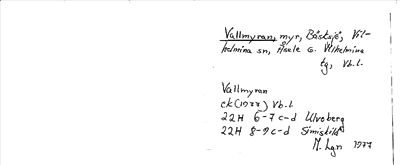 Vallmyran, myr, Båsksjö, Vil-
helmina sn, Åsele o. Vilhelmina
tg, Vb.l.
Vallmyran
ek (1977) Vb.l
22H 6-7 c-d Ulvoberg
22H 8-9 c-d Simiskilä
M. Lgn 1977